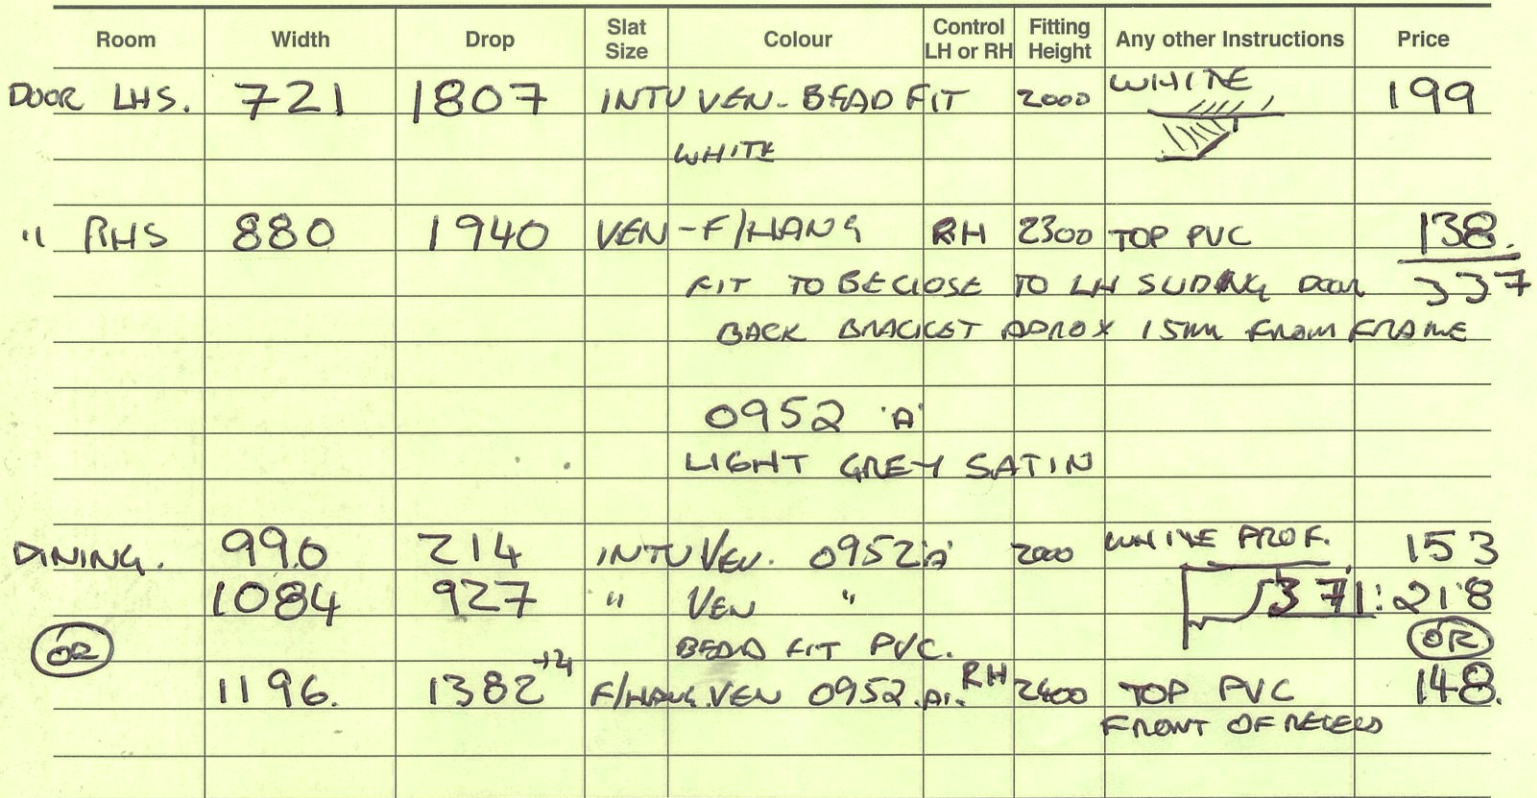 Room Width Drop Slat Size Colour Control LH or RH Fitting Height Any other Instructions Price
DOOR LHS. 721 1807 INTU VEN - BEAD FIT 2000 WHITE 199
WHITE
" RHS 880 1940 VEN - F/HANG RH 2300 TOP PVC 138.
FIT TO BE CLOSE TO LH SLIDING DOOR 337
BACK BRACKET APROX 15MM FROM FRAME
0952 'A'
LIGHT GREY SATIN
DINING. 990 214 INTU VEN. 0952 'A' 2000 WHITE PROF. 153
1084 927 " VEN " 371: 218
OR BEAD FIT PVC. OR
1196. 1382 F/HANG. VEN 0952 .A. RH 2400 TOP PVC 148.
FRONT OF RECESS